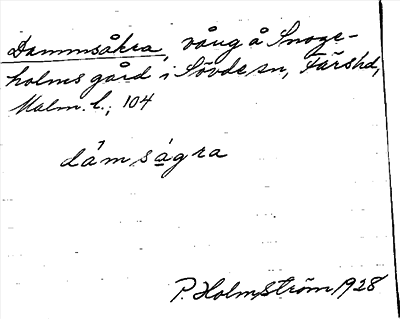 Dammsåkra, vång å Snoge-
holms gård i Sövde sn, Färs hd,
Malm. l.; 104
dámságra
P. Holmström 1928